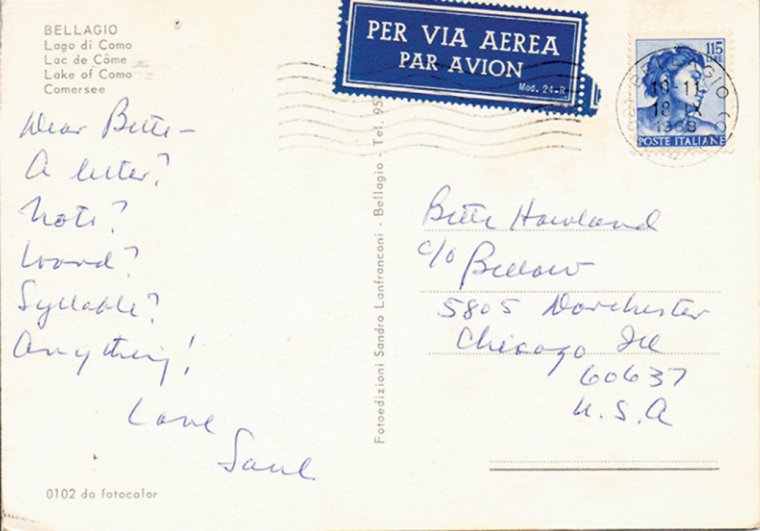 BELLAGIO
Lago di Como
Lac de Côme
Lake of Como
Comersee
PER VIA AEREA
PAR AVION
Mod. 24-R
115
LIRE
BELLAGIO
10-11
18 IX
POSTE ITALIANE
Dear Bette –
A letter?
Note?
Word?
Syllable?
Anything!
Love
Saul
Fotoedizioni Sandro Lanfranconi - Bellagio - Tel. 95
Bette Howland
c/o Bellow
5805 Dorchester
Chicago Ill
60637
U.S.A
0102 da fotocolor